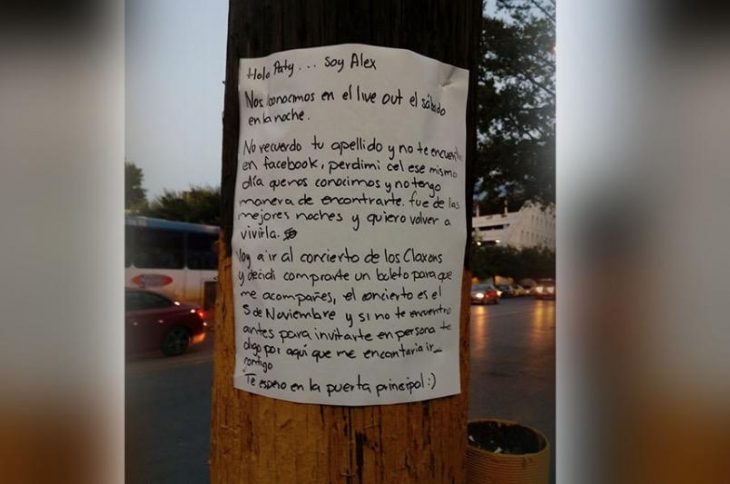 Hola Paty... soy Alex
Nos conocimos en el live out el sábado
en la noche.
No recuerdo tu apellido y no te encuentro
en facebook, perdi mi cel ese mismo
día que nos conocimos y no tengo
manera de encontrarte. fue de las
mejores noches y quiero volver a
vivirla.
Voy a ir al concierto de los Claxons
y decidi comprarte un boleto para que
me acompañes, el concierto es el
5 de Noviembre y si no te encuentro
antes para invitarte en persona te
digo por aquí que me encantaria ir
contigo
Te espero en la puerta principal :)